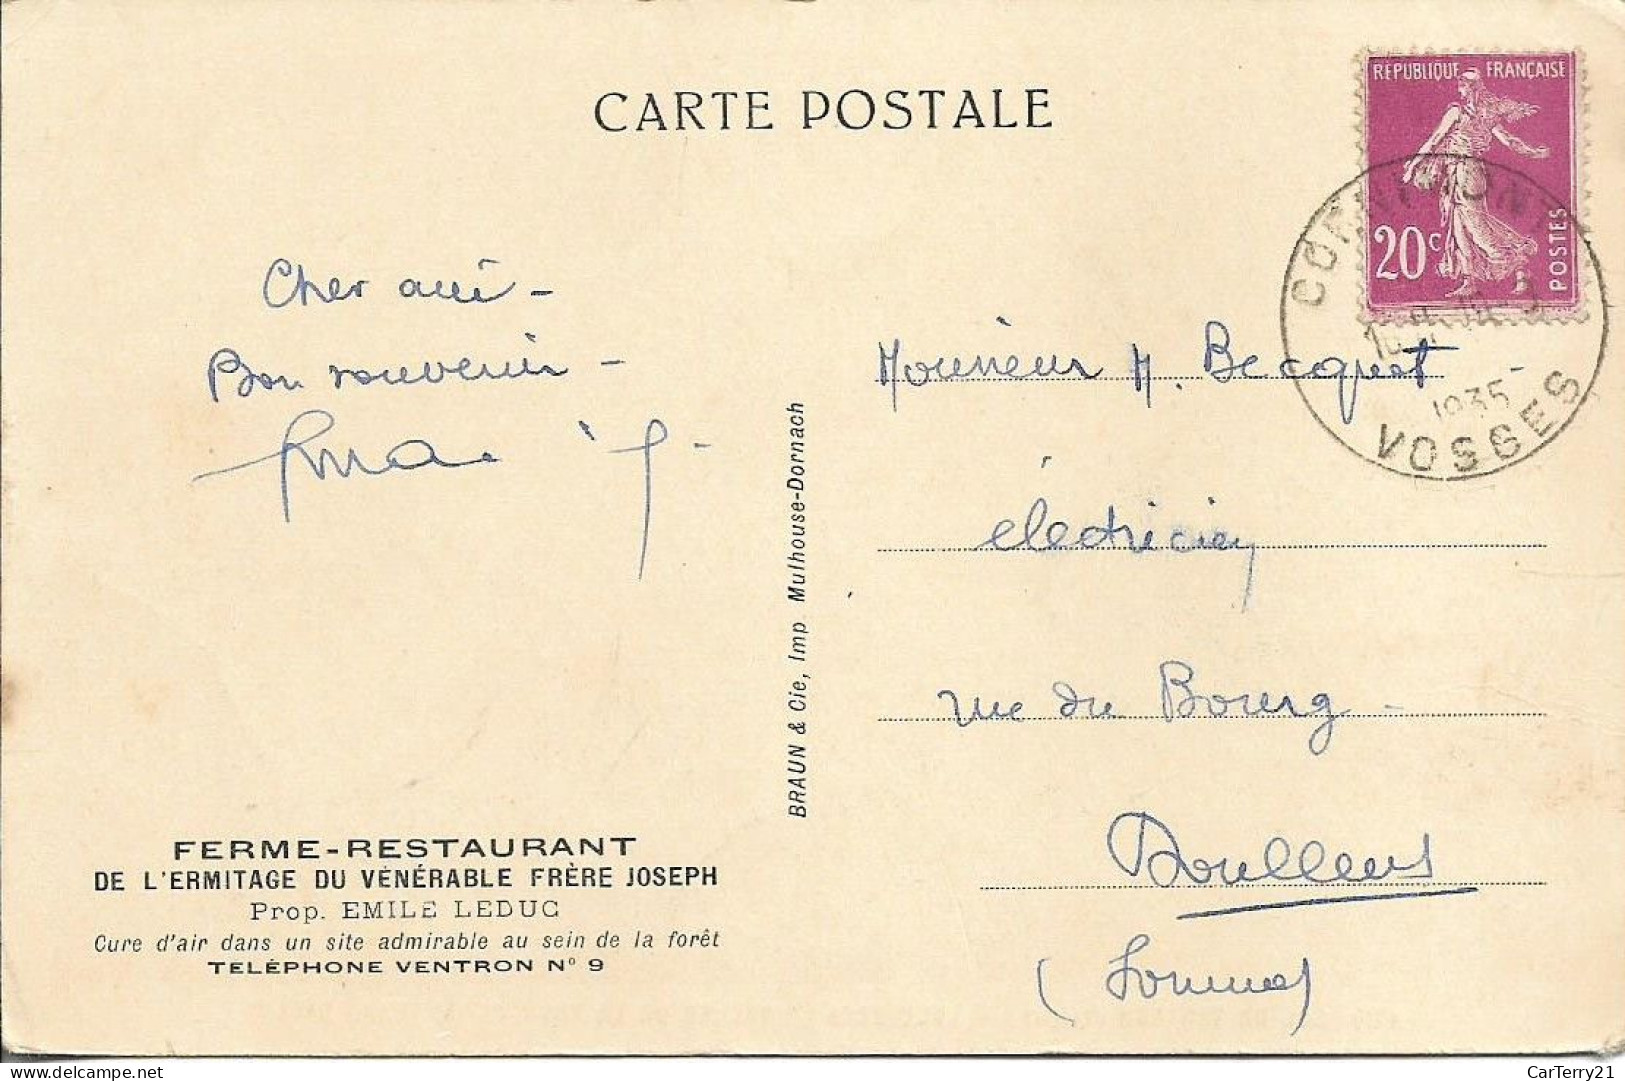 CARTE POSTALE
RÉPUBLIQUE FRANÇAISE
20c
POSTES
CORNIMONT
1935
VOSGES
Cher ami -
Bon souvenir -
Monsieur M. Becquet -
électricien
rue du Bourg -
Doullens
(Somme)
BRAUN & Cie, Imp Mulhouse-Dornach
FERME-RESTAURANT
DE L'ERMITAGE DU VÉNÉRABLE FRÈRE JOSEPH
Prop. EMILE LEDUC
Cure d'air dans un site admirable au sein de la forêt
TÉLÉPHONE VENTRON N° 9
CarTerry21